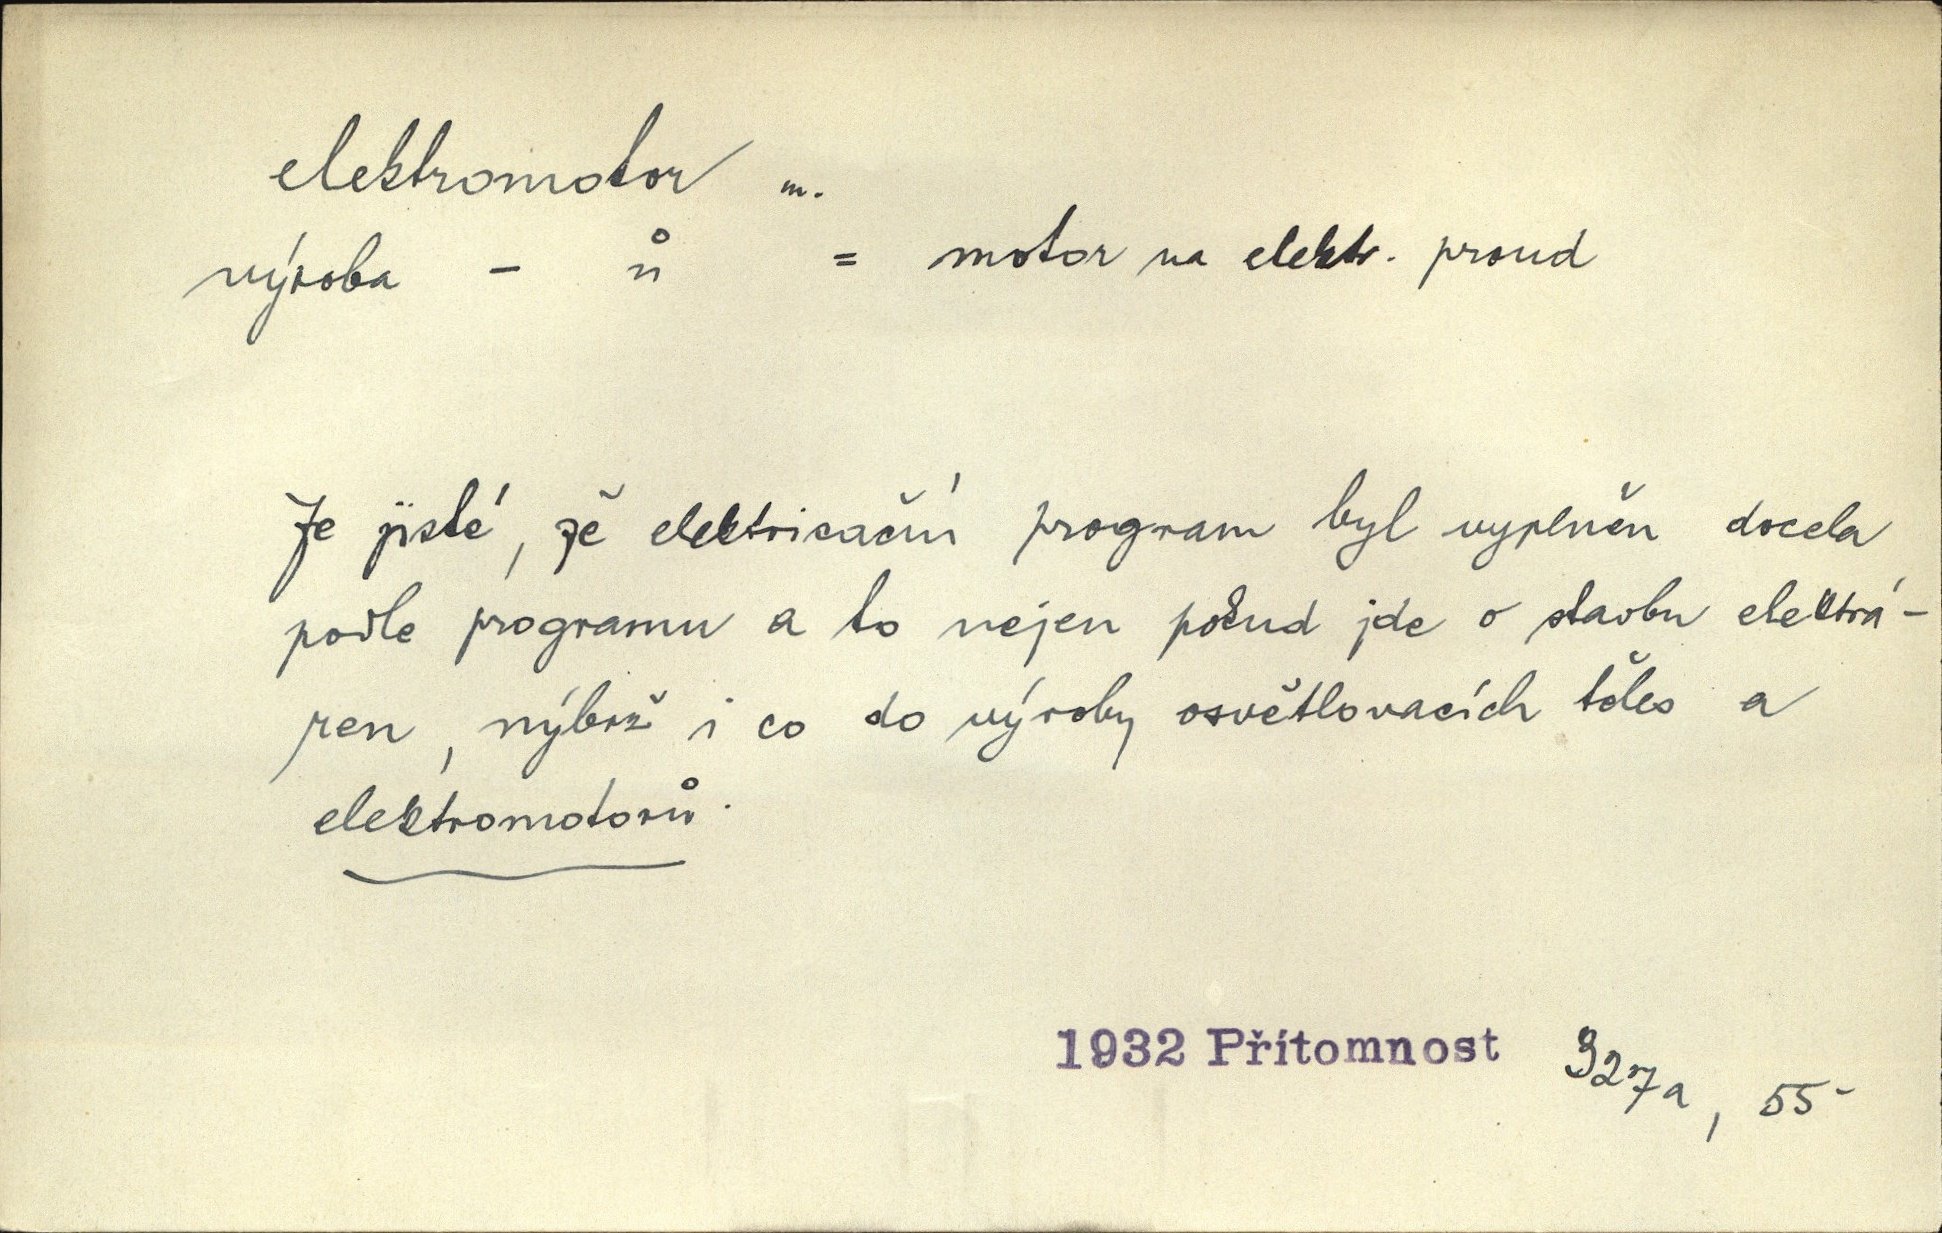 elektromotor m.
výroba - ů = motor na elektr. proud
Je jisté, že elektrisační program byl vyplněn docela
podle programu a to nejen pokud jde o stavbu elektrá-
ren, nýbrž i co do výroby osvětlovacích těles a
elektromotorů.
1932 Přítomnost 327a, 55